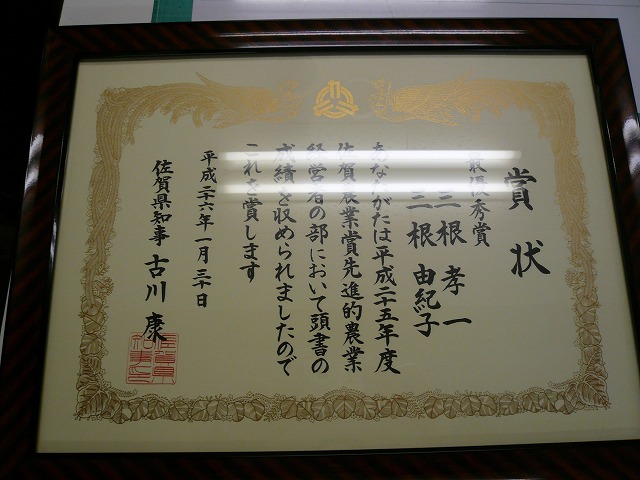 賞状
最優秀賞
三根 孝一
三根 由紀子
あなたがたは平成二十五年度
佐賀農業賞先進的農業
経営者の部において頭書の
成績を収められましたので
これを賞します
平成二十六年一月三十日
佐賀県知事 古川 康